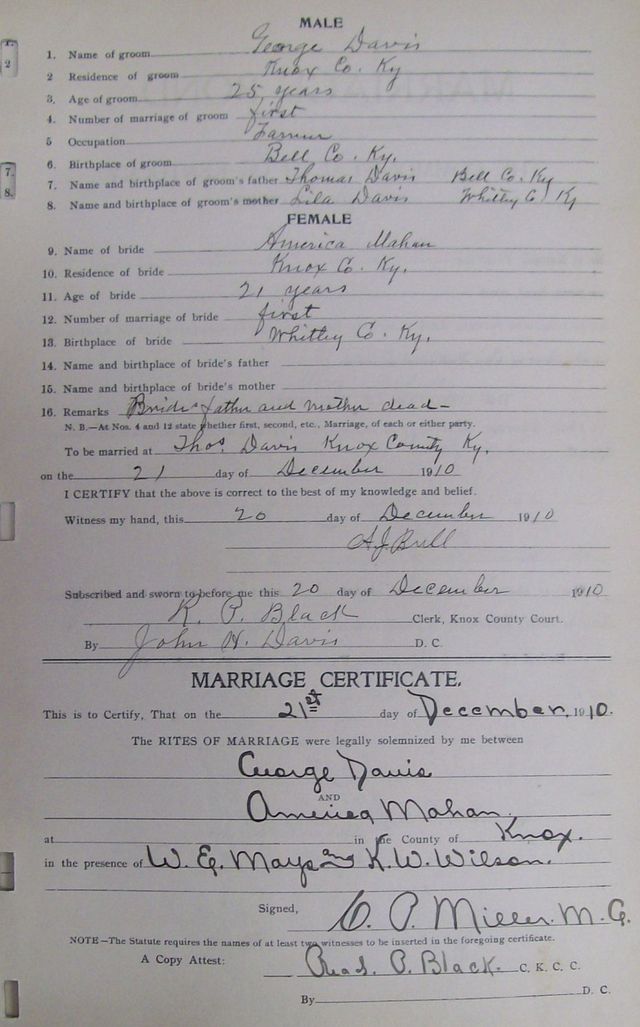 MALE
1. Name of groom George Davis
2 Residence of groom Knox Co. Ky
3. Age of groom 25 years
4. Number of marriage of groom first
5 Occupation Farmer
6. Birthplace of groom Bell Co. Ky.
7. Name and birthplace of groom's father Thomas Davis Bell Co. Ky
8. Name and birthplace of groom's mother Lila Davis Whitley Co. Ky
FEMALE
9. Name of bride America Mahan
10. Residence of bride Knox Co. Ky.
11. Age of bride 21 years
12. Number of marriage of bride first
13. Birthplace of bride Whitley Co. Ky.
14. Name and birthplace of bride's father
15. Name and birthplace of bride's mother
16. Remarks Brides father and mother dead-
N. B.—At Nos. 4 and 12 state whether first, second, etc., Marriage, of each or either party.
To be married at Thos. Davis Knox County Ky.
on the 21 day of December 1910
I CERTIFY that the above is correct to the best of my knowledge and belief.
Witness my hand, this 20 day of December 1910
A.J. Brill
Subscribed and sworn to before me this 20 day of December 1910
R. P. Black Clerk, Knox County Court.
By John H. Davis D. C.
MARRIAGE CERTIFICATE.
This is to Certify, That on the 21st day of December, 1910.
The RITES OF MARRIAGE were legally solemnized by me between
George Davis
AND
America Mahan.
at in the County of Knox.
in the presence of W. G. Mays and K. W. Wilson.
Signed, C. P. Miller. M. G.
NOTE—The Statute requires the names of at least two witnesses to be inserted in the foregoing certificate.
A Copy Attest: Read. P. Black. C. K. C. C.
By D. C.
1.
2
7.
8.